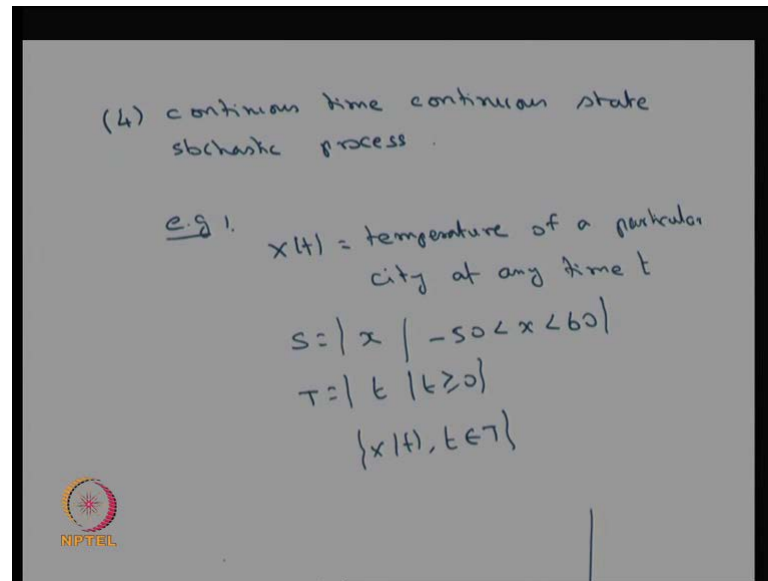 (4) continuous time continuous state
stochastic process.
e.g 1.
X(t) = temperature of a particular
city at any time t
S = { x | -50 < x < 60 }
T = { t | t ≥ 0 }
{ X(t), t ∈ T }
NPTEL